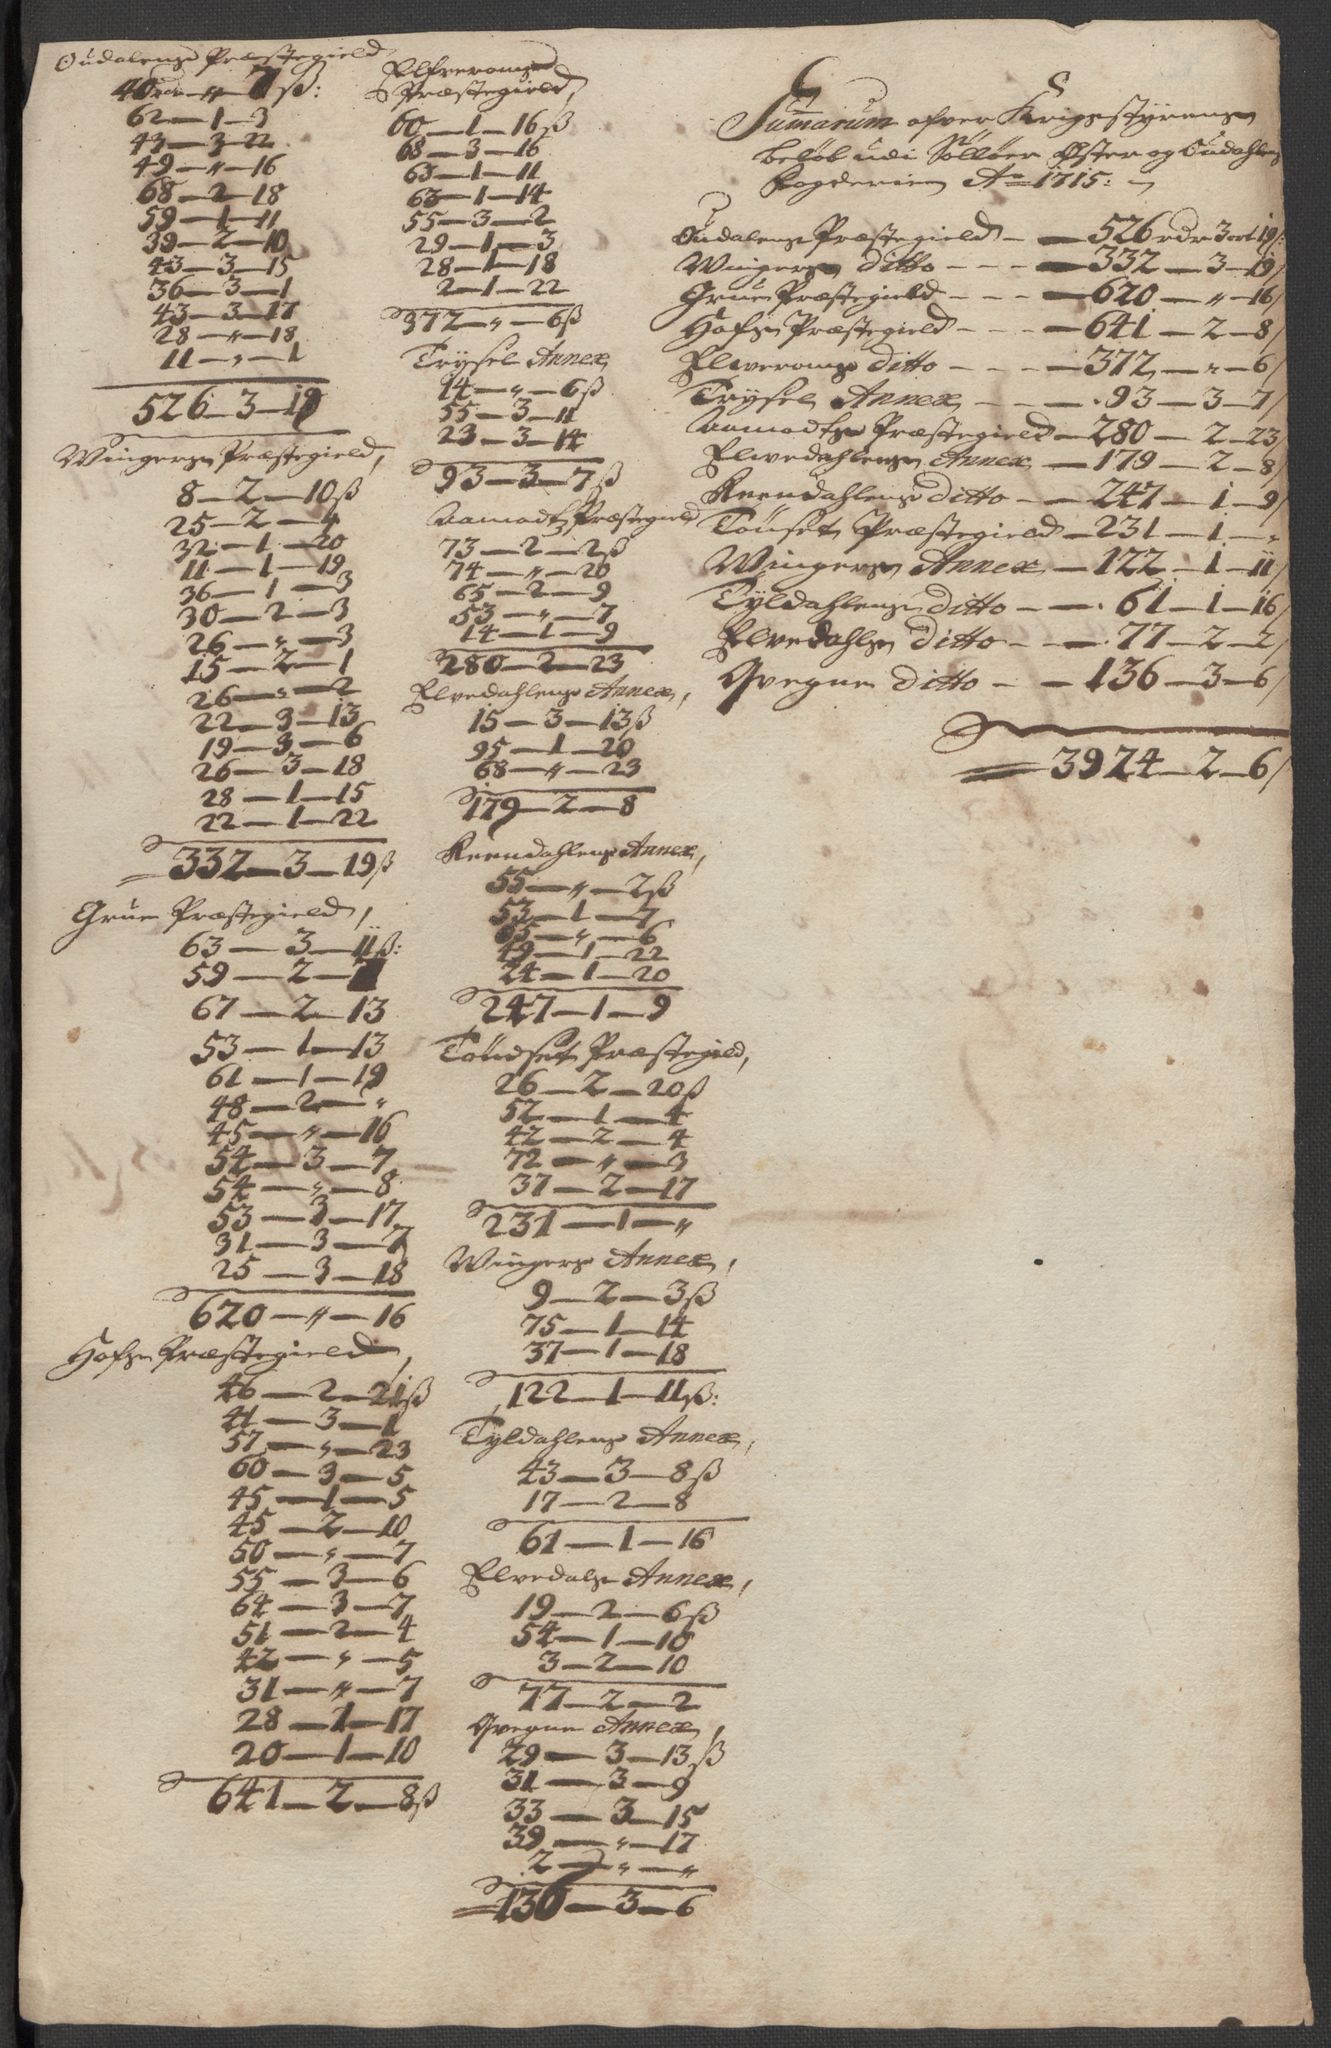 Oudalens Præstegield
40 rdr — „ — 7 ß:
62 — 1 — 3
43 — 3 — 22
49 — „ — 16
68 — 2 — 18
59 — 1 — 11
39 — 2 — 10
43 — 3 — 15
36 — 3 — 1
43 — 3 — 17
28 — „ — 18
11 — „ — 1
526 — 3 — 19
Wingers Præstegield,
8 — 2 — 10 ß
25 — 2 — 4
32 — 1 — 20
11 — 1 — 19
36 — 1 — 3
30 — 2 — 3
26 — „ — 3
15 — 2 — 1
26 — „ — 2
22 — 3 — 13
19 — 3 — 6
26 — 3 — 18
28 — 1 — 15
22 — 1 — 22
332 — 3 — 19 ß
Grue Præstegield,
63 — 3 — 11 ß:
59 — 2 —
67 — 2 — 13
53 — 1 — 13
61 — 1 — 19
48 — 2 — „
45 — „ — 16
54 — 3 — 7
54 — „ — 8
53 — 3 — 17
31 — 3 — 7
25 — 3 — 18
620 — „ — 16
Hofs Præstegield,
46 — 2 — 21 ß
41 — 3 — 1
57 — „ — 23
60 — 3 — 5
45 — 1 — 5
45 — 2 — 10
50 — „ — 7
55 — 3 — 6
64 — 3 — 7
51 — 2 — 4
42 — „ — 5
31 — „ — 7
28 — 1 — 17
20 — 1 — 10
641 — 2 — 8 ß
Elfveroms
Præstegield,
60 — 1 — 16 ß
68 — 3 — 16
63 — 1 — 11
63 — 1 — 14
55 — 3 — 2
29 — 1 — 3
28 — 1 — 18
2 — 1 — 22
372 — „ — 6 ß
Trysel Annex
14 — „ — 6 ß
55 — 3 — 11
23 — 3 — 14
93 — 3 — 7 ß
Aamodts Præstegield
73 — 2 — 2 ß
74 — „ — 20
65 — 2 — 9
53 — „ — 7
14 — 1 — 9
280 — 2 — 23
Elvedahlens Annex,
15 — 3 — 13 ß
95 — 1 — 20
68 — „ — 23
179 — 2 — 8
Reendahlens Annex,
55 — „ — 2 ß
53 — 1 — 7
65 — „ — 6
49 — 1 — 22
24 — 1 — 20
247 — 1 — 9
Tøndset Præstegield,
26 — 2 — 20 ß
52 — 1 — 4
42 — 2 — 4
72 — „ — 3
37 — 2 — 17
231 — 1 — „
Wingers Annex,
9 — 2 — 3 ß
75 — 1 — 14
37 — 1 — 18
122 — 1 — 11 ß:
Tyldahlens Annex,
43 — 3 — 8 ß
17 — 2 — 8
61 — 1 — 16
Elvedals Annex,
19 — 2 — 6 ß
54 — 1 — 10
3 — 2 — 10
77 — 2 — 2
Qvegne Annex,
29 — 3 — 13 ß
31 — 3 — 9
33 — 3 — 15
39 — „ — 17
2 — „ — „
136 — 3 — 6
Summarum ofver Krigsstyrens
beløb udi Solløer Øster og Oudahlens
Fogderie Ao 1715:
Oudalens Præstegield — 526 rdr 3 ort 19 ß:
Wingers ditto — 332 — 3 — 19
Grue Præstegield — 620 — „ — 16
Hofs Præstegield — 641 — 2 — 8
Elveroms ditto — 372 — „ — 6
Trysel Annex — 93 — 3 — 7
Aamodts Præstegield — 280 — 2 — 23
Elvedahlens Annex — 179 — 2 — 8
Reendahlens ditto — 247 — 1 — 9
Tønset Præstegield — 231 — 1 — „
Wingers Annex — 122 — 1 — 11
Tyldahlens ditto — 61 — 1 — 16
Elvedahls ditto — 77 — 2 — 2
Qvegne ditto — 136 — 3 — 6
3924 — 2 — 6